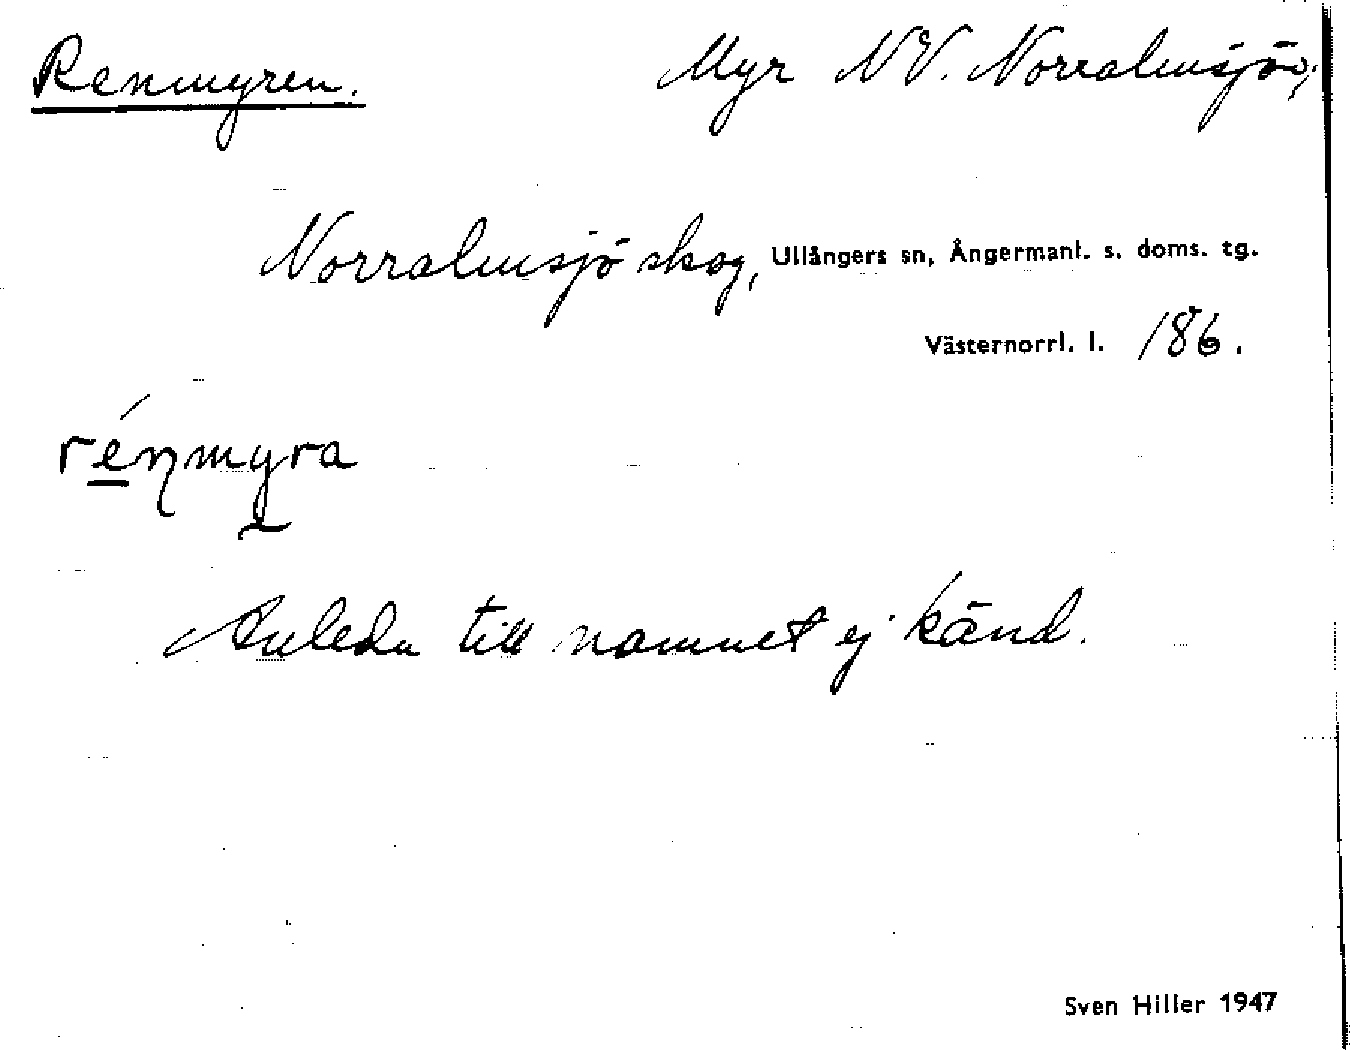 Renmyren.
Myr NV. Norralmsjö,
Norralmsjö skog, Ullångers sn, Ångermanl. s. doms. tg.
Västernorrl. l. 186.
rénmyra
Anledn till namnet ej känd.
Sven Hiller 1947